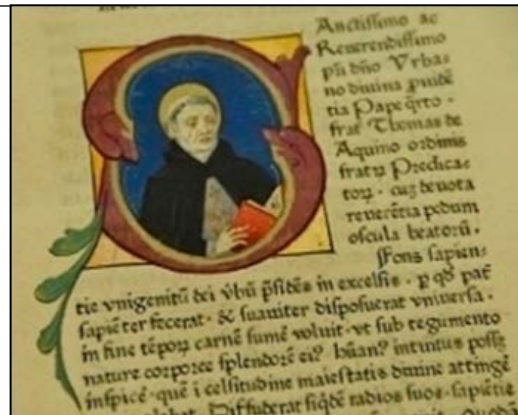 Anctissimo ac
Reuerendissimo
pri dño Vrba
no diuina puidē
tia Pape qrto ·
frat Thomas de
Aquino ordinis
fratꝝ Predica
toꝝ · cuȝ deuota
reuerētia pedum
oscula beatoꝝ ·
Fons sapien
tie vnigenitū dei vbū p̄sidēs in excelsis · p qd̄ pat̄
sapiēter fecerat · & suauiter disposuerat vniuersa ·
in fine tēpoꝝ carnē sumē voluit · vt sub tegumento
nature corporee splendorē ei⁹ hūan⁹ intuitus poss̄
inspicē · quē i celsitudine maiestatis diuine attingē
Diffuderat siqdē radios suos · sapiētie